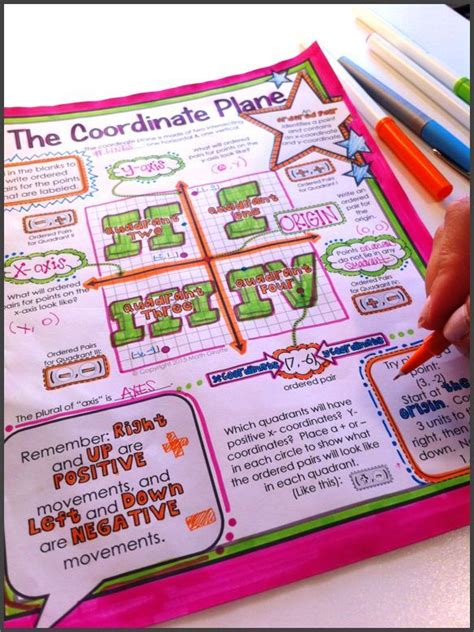 The Coordinate Plane
The coordinate plane is made of two intersecting
one horizontal & one vertical.
Ordered Pair
Identifies a point
and contains
an x-coordinate
in the blanks to
write ordered
pairs for the points
that are labeled.
y-axis
What will ordered
pairs for points on
the y-axis look like?
(0, y)
Ordered Pairs
for Quadrant II
Quadrant Two
II
Quadrant One
I
ORIGIN
Write an
ordered pair
for the
origin.
x-axis
What will ordered
pairs for points on the
x-axis look like?
(x, 0)
Quadrant Three
III
Quadrant Four
IV
Points
do not lie in any
Ordered Pairs
for Quadrant IV
Ordered Pairs
for Quadrant III
© Copyright 2013 Math Giraffe
x-coordinate
(7, -6)
y-coordinate
ordered pair
The plural of "axis" is AXES
Remember: Right
and UP are
POSITIVE
movements, and
Left and Down
are NEGATIVE
movements.
Which quadrants will have
positive x- coordinates? Y-
coordinates? Place a + or –
in each circle to show what
the ordered pairs will look like
in each quadrant.
(Like this):
Try
(3, -2)
Start at
the
origin.
3 units to
right, then
down